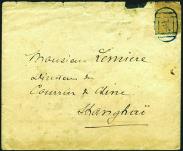 Monsieur Lemière
Directeur du
Courrier de Chine
Shanghaï